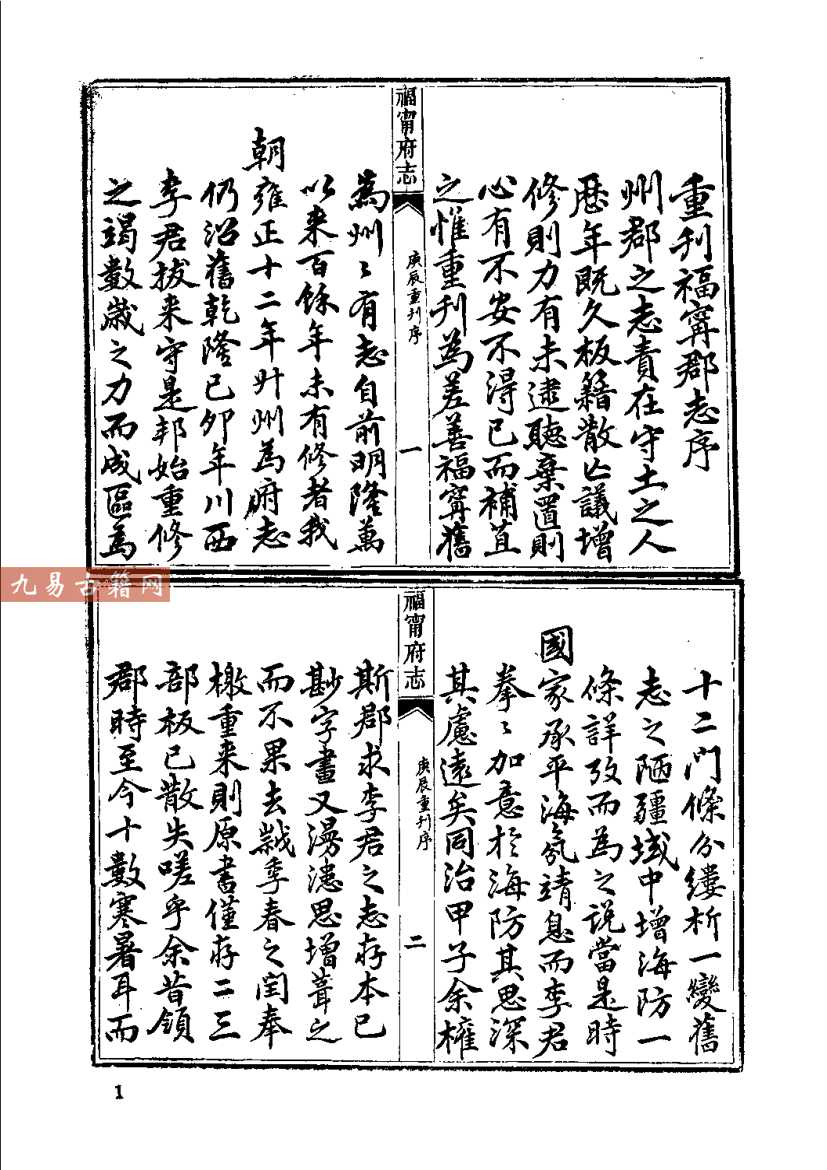 重刋福寧郡志序
州郡之志責在守土之人
歴年既久板籍散亾議增
修則力有未逮聽棄置則
心有不安不得已而補苴
之惟重刋為差善福寧舊
福甯府志
庚辰重刋序
一
為州〻有志自前明隆萬
以来百餘年未有修者我
朝雍正十二年升州為府志
仍沿舊乾隆己卯年川西
李君拔来守是邦始重修
之竭數歲之力而成區為
九易古籍网
十二門條分縷析一變舊
志之陋疆域中增海防一
條詳攷而為之說當是時
國家承平海氛靖息而李君
拳〻加意於海防其思深
其慮遠矣同治甲子余權
福甯府志
庚辰重刋序
二
斯郡求李君之志存本已
尠字畫又漫漶思增葺之
而不果去歲季春之閏奉
檄重来則原書僅存二三
部板已散失嗟乎余昔領
郡時至今十數寒暑耳而
1